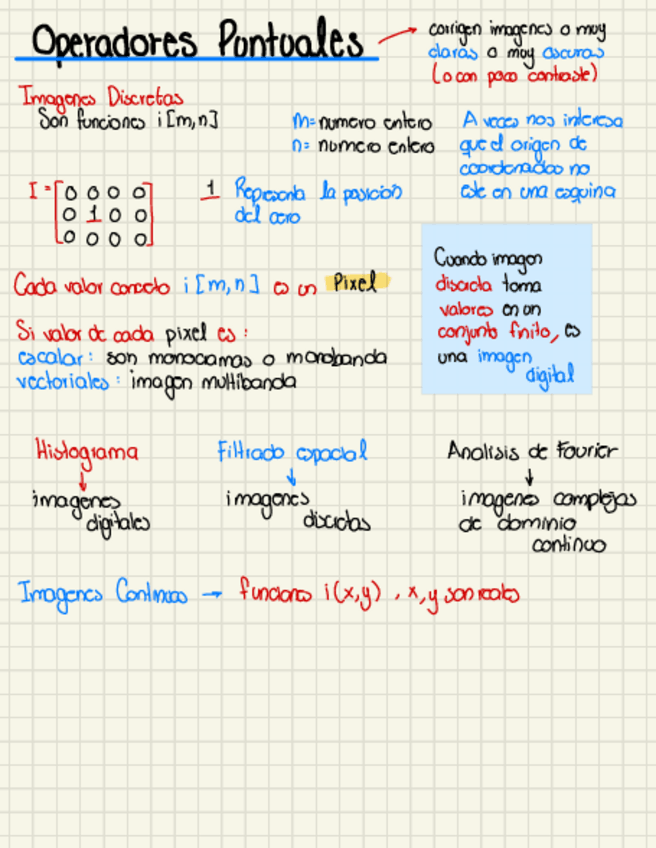 Operadores Puntuales
corrigen imagenes o muy
claras o muy oscuras
(o con poco contraste)
Imagenes Discretas
Son funciones i[m,n]
m= numero entero
n= numero entero
A veces nos interesa
que el origen de
coordenadas no
este en una esquina
I = [0 0 0 0
0 1 0 0
0 0 0 0]
1 Representa la posicion
del cero
Cuando imagen
discreta toma
valores en un
conjunto finito, es
una imagen
digital
Cada valor concreto i[m,n] es un Pixel
Si valor de cada pixel es:
escalar: son monocramas o monobanda
vectoriales: imagen multibanda
Histograma
↓
imagenes
digitales
Filtrado espacial
↓
imagenes
discretas
Analisis de Fourier
↓
imagenes complejas
de dominio
continuo
Imagenes Continuas → funciones i(x,y), x,y son reales